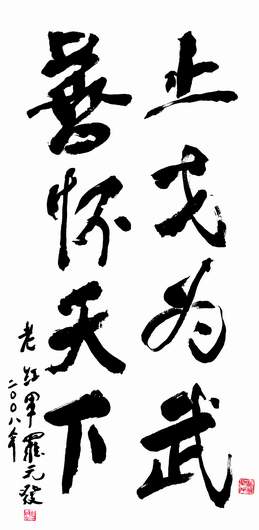 止戈为武
善怀天下
老红军罗元发
二〇〇八年